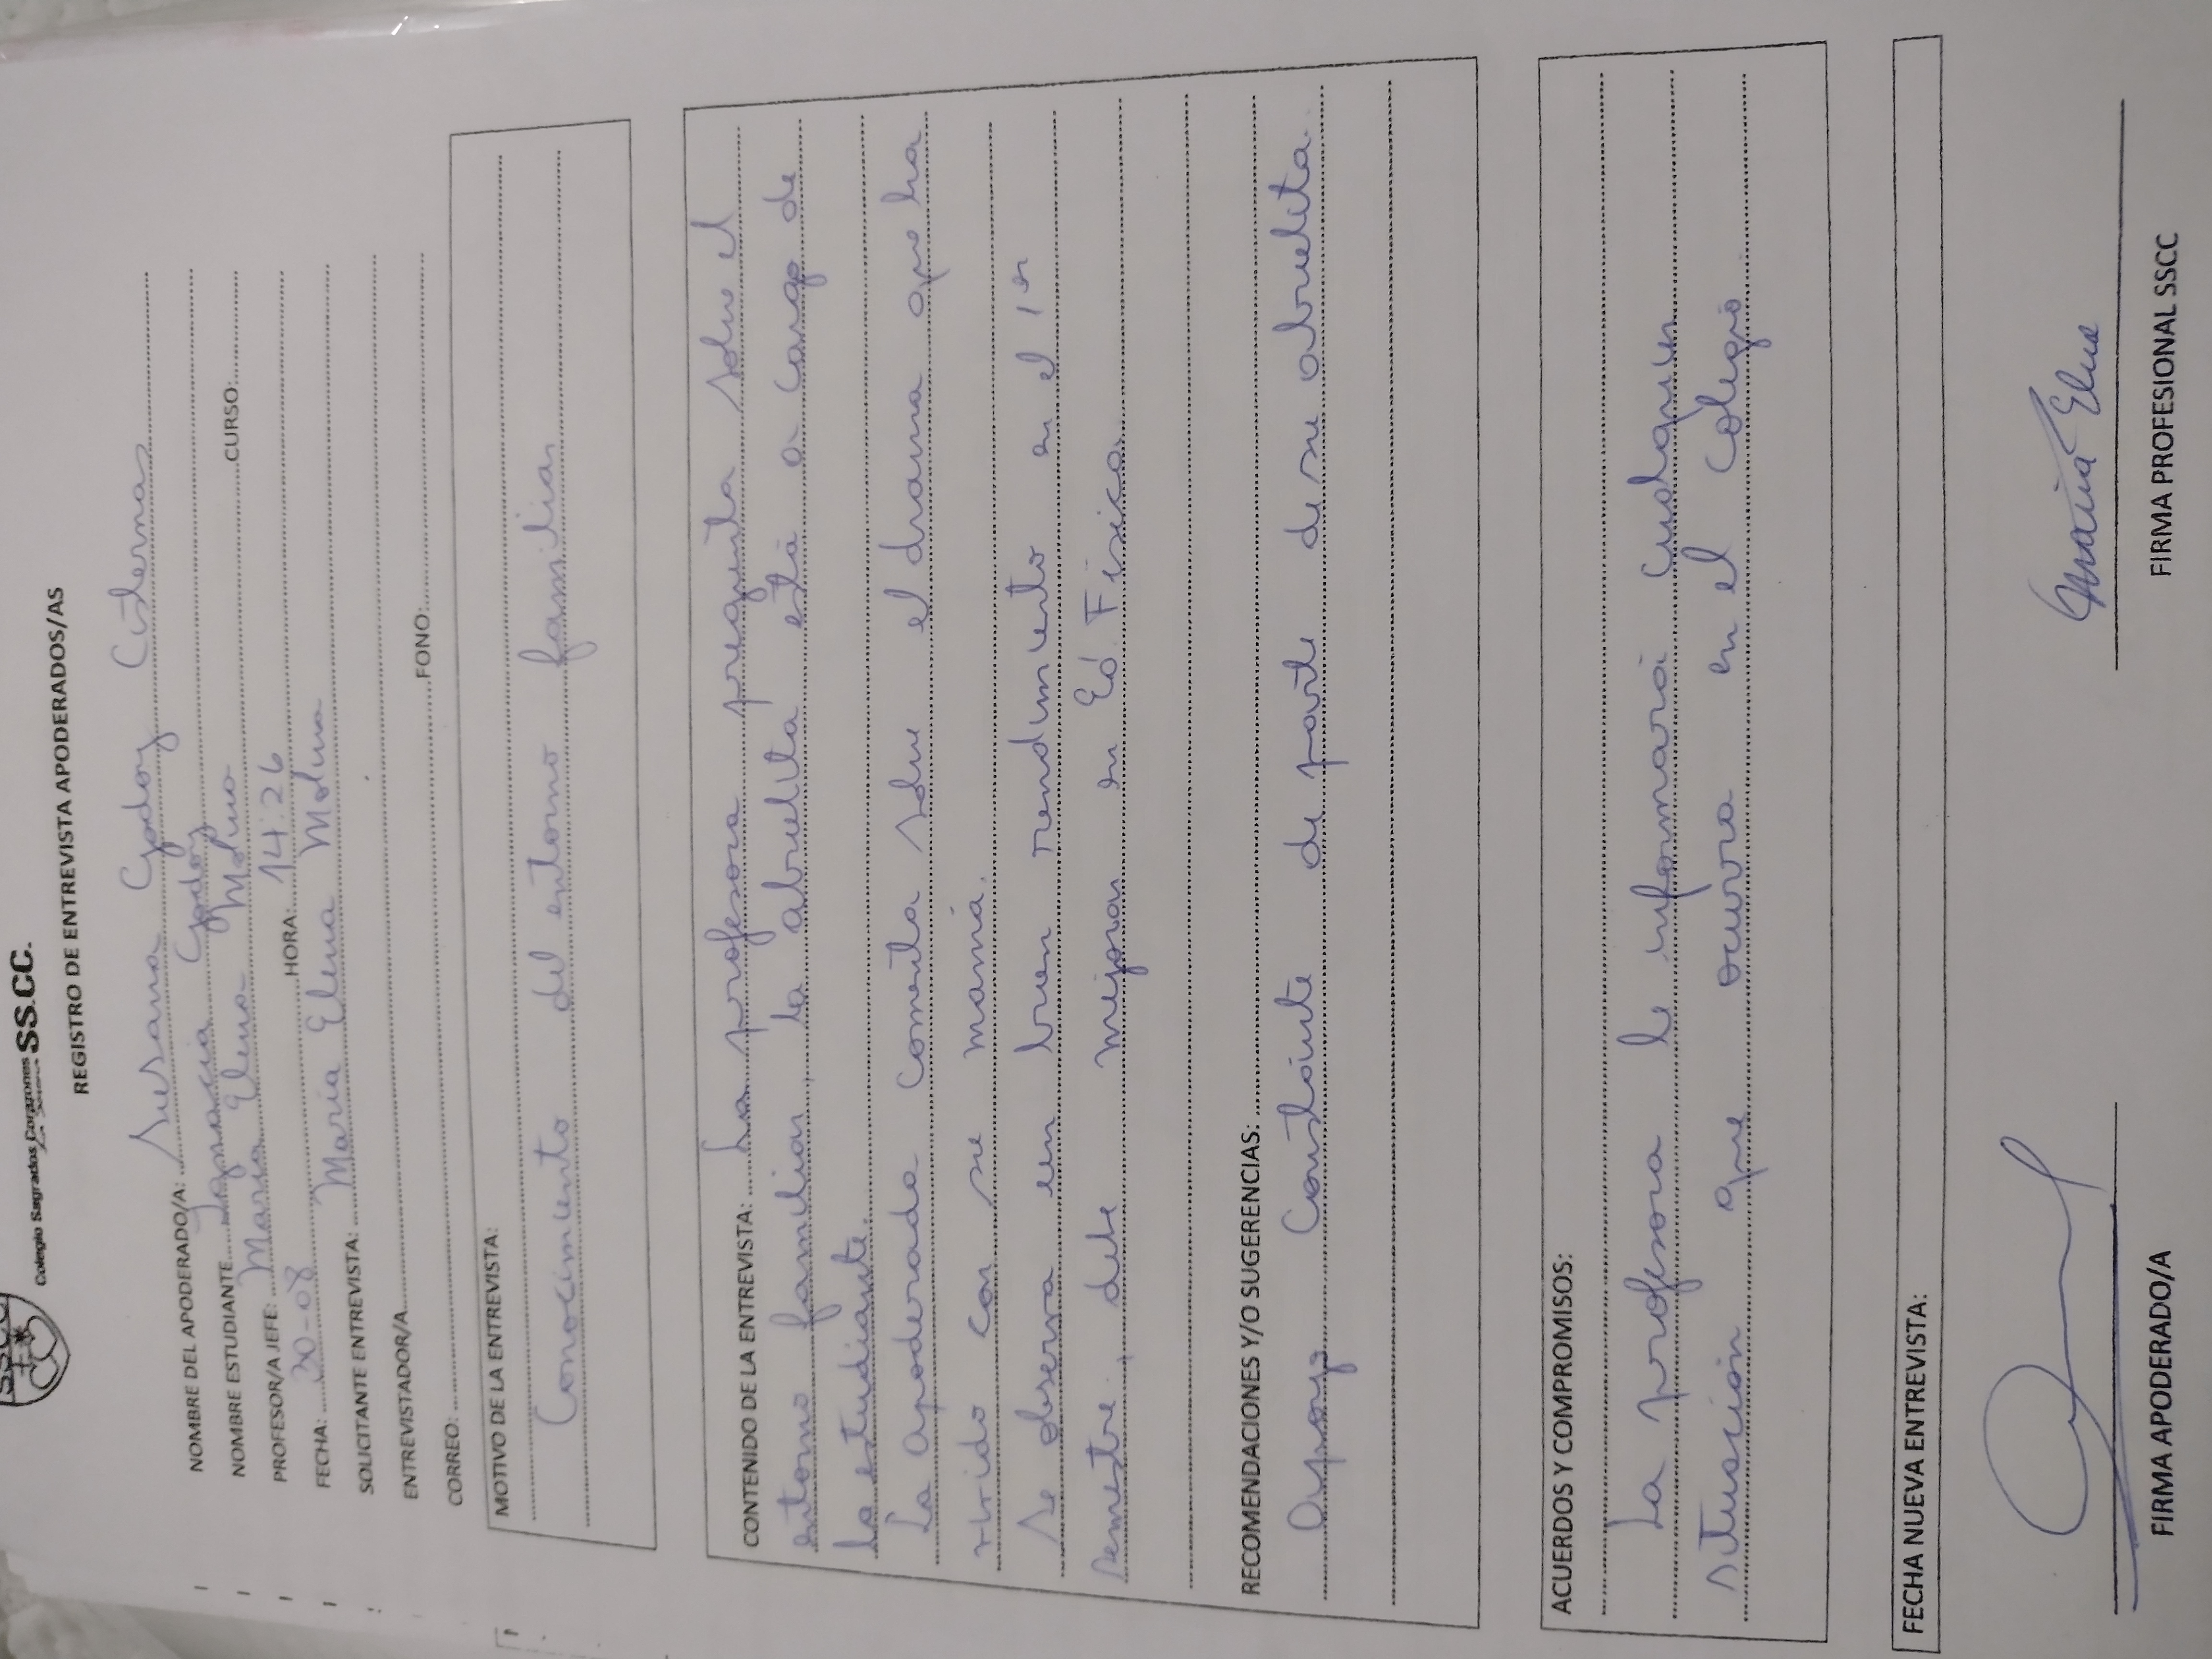 SSCC
Colegio Sagrados Corazones SS.CC.
REGISTRO DE ENTREVISTA APODERADOS/AS
NOMBRE DEL APODERADO/A: Susana Godoy Cisternas
NOMBRE ESTUDIANTE Ignacia Godoy
PROFESOR/A JEFE: María Elena Molina CURSO:
FECHA: 30-08 HORA: 14:26
SOLICITANTE ENTREVISTA: María Elena Molina
ENTREVISTADOR/A
CORREO: FONO:
MOTIVO DE LA ENTREVISTA:
Conocimiento del entorno familiar
CONTENIDO DE LA ENTREVISTA: La profesora pregunta sobre el
entorno familiar, la abuelita está a cargo de
la estudiante.
La apoderada comenta sobre el drama que ha
vivido con su mamá.
Se observa un buen rendimiento en el 1er
semestre, debe mejorar en Ed. Física.
RECOMENDACIONES Y/O SUGERENCIAS:
Apoyo constante de parte de su abuelita.
ACUERDOS Y COMPROMISOS:
La profesora le informará cualquier
situación que ocurra en el Colegio
FECHA NUEVA ENTREVISTA:
María Elena
FIRMA APODERADO/A FIRMA PROFESIONAL SSCC